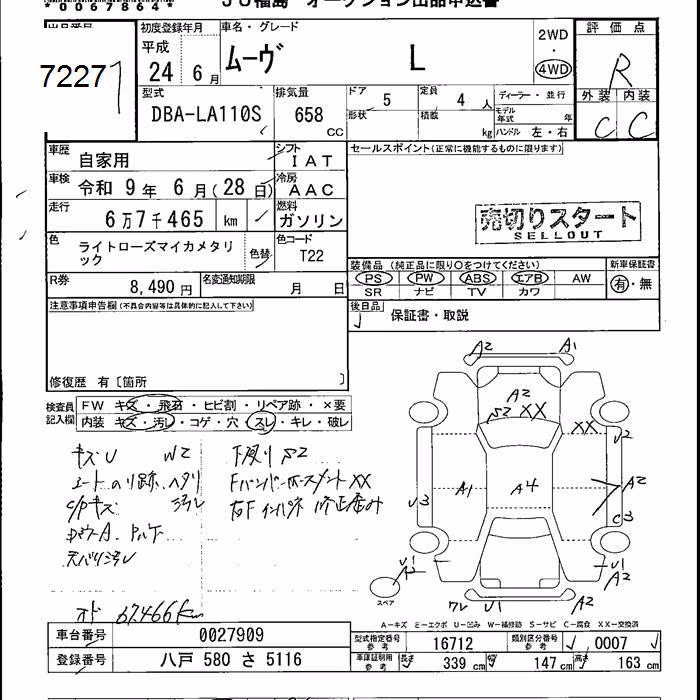 *0067864*
JU福島 オークション出品申込書
72277
初度登録年月 車名・グレード 評価点
平成 24年 6月 ムーヴ L 2WD・4WD R
型式 DBA-LA110S 排気量 658 CC ドア 5 形状 定員 4人 積載 kg ディーラー・並行 モデル年式 年 ハンドル 左・右 外装 C 内装 C
車歴 自家用 シフト IAT セールスポイント(正常に機能するものに限ります)
車検 令和 9年 6月(28日) 冷房 AAC
走行 6万7千465 km 燃料 ガソリン
売切りスタート
SELLOUT
色 ライトローズマイカメタリック 色替 色コード T22
装備品 (純正品に限り○をつけてください) 新車保証書
PS PW ABS エアB AW 有・無
SR ナビ TV カワ
R券 8,490円 名変通知期限 月 日
注意事項申告欄(不具合内容等は具体的に記入して下さい)
後日品 保証書・取説
修復歴 有〔箇所 〕
検査員記入欄 FW キズ・飛石・ヒビ割・リペア跡・×要
内装 キズ・汚レ・コゲ・穴・スレ・キレ・破レ
キズU W2 下廻りS2
シートのり跡、ヘタリ
C/Pキズ 汚レ
天バリ汚レ
オド 67,466km
A2 A1
A2
S2 XX
XX
U2
A1 A4 A2
U3 C3
U1 A2
U1 A2
スペア
ワレ U1 A2
A-キズ E-エクボ U-凹み W-補修跡 S-サビ C-腐食 XX-交換済
車台番号 0027909 型式指定番号 参考 16712 類別区分番号 参考 0007
登録番号 八戸 580 さ 5116 車庫証明用 参考 長さ 339 cm 幅 147 cm 高さ 163 cm